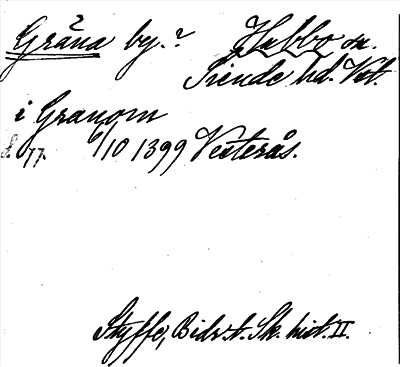 Gräna by.? Hubbo sn.
Siende hd. Vstm.
i Granom
s. 77. 6/10 1399 Vesterås.
Styffe, Bidr. t. Sk. hist. II.